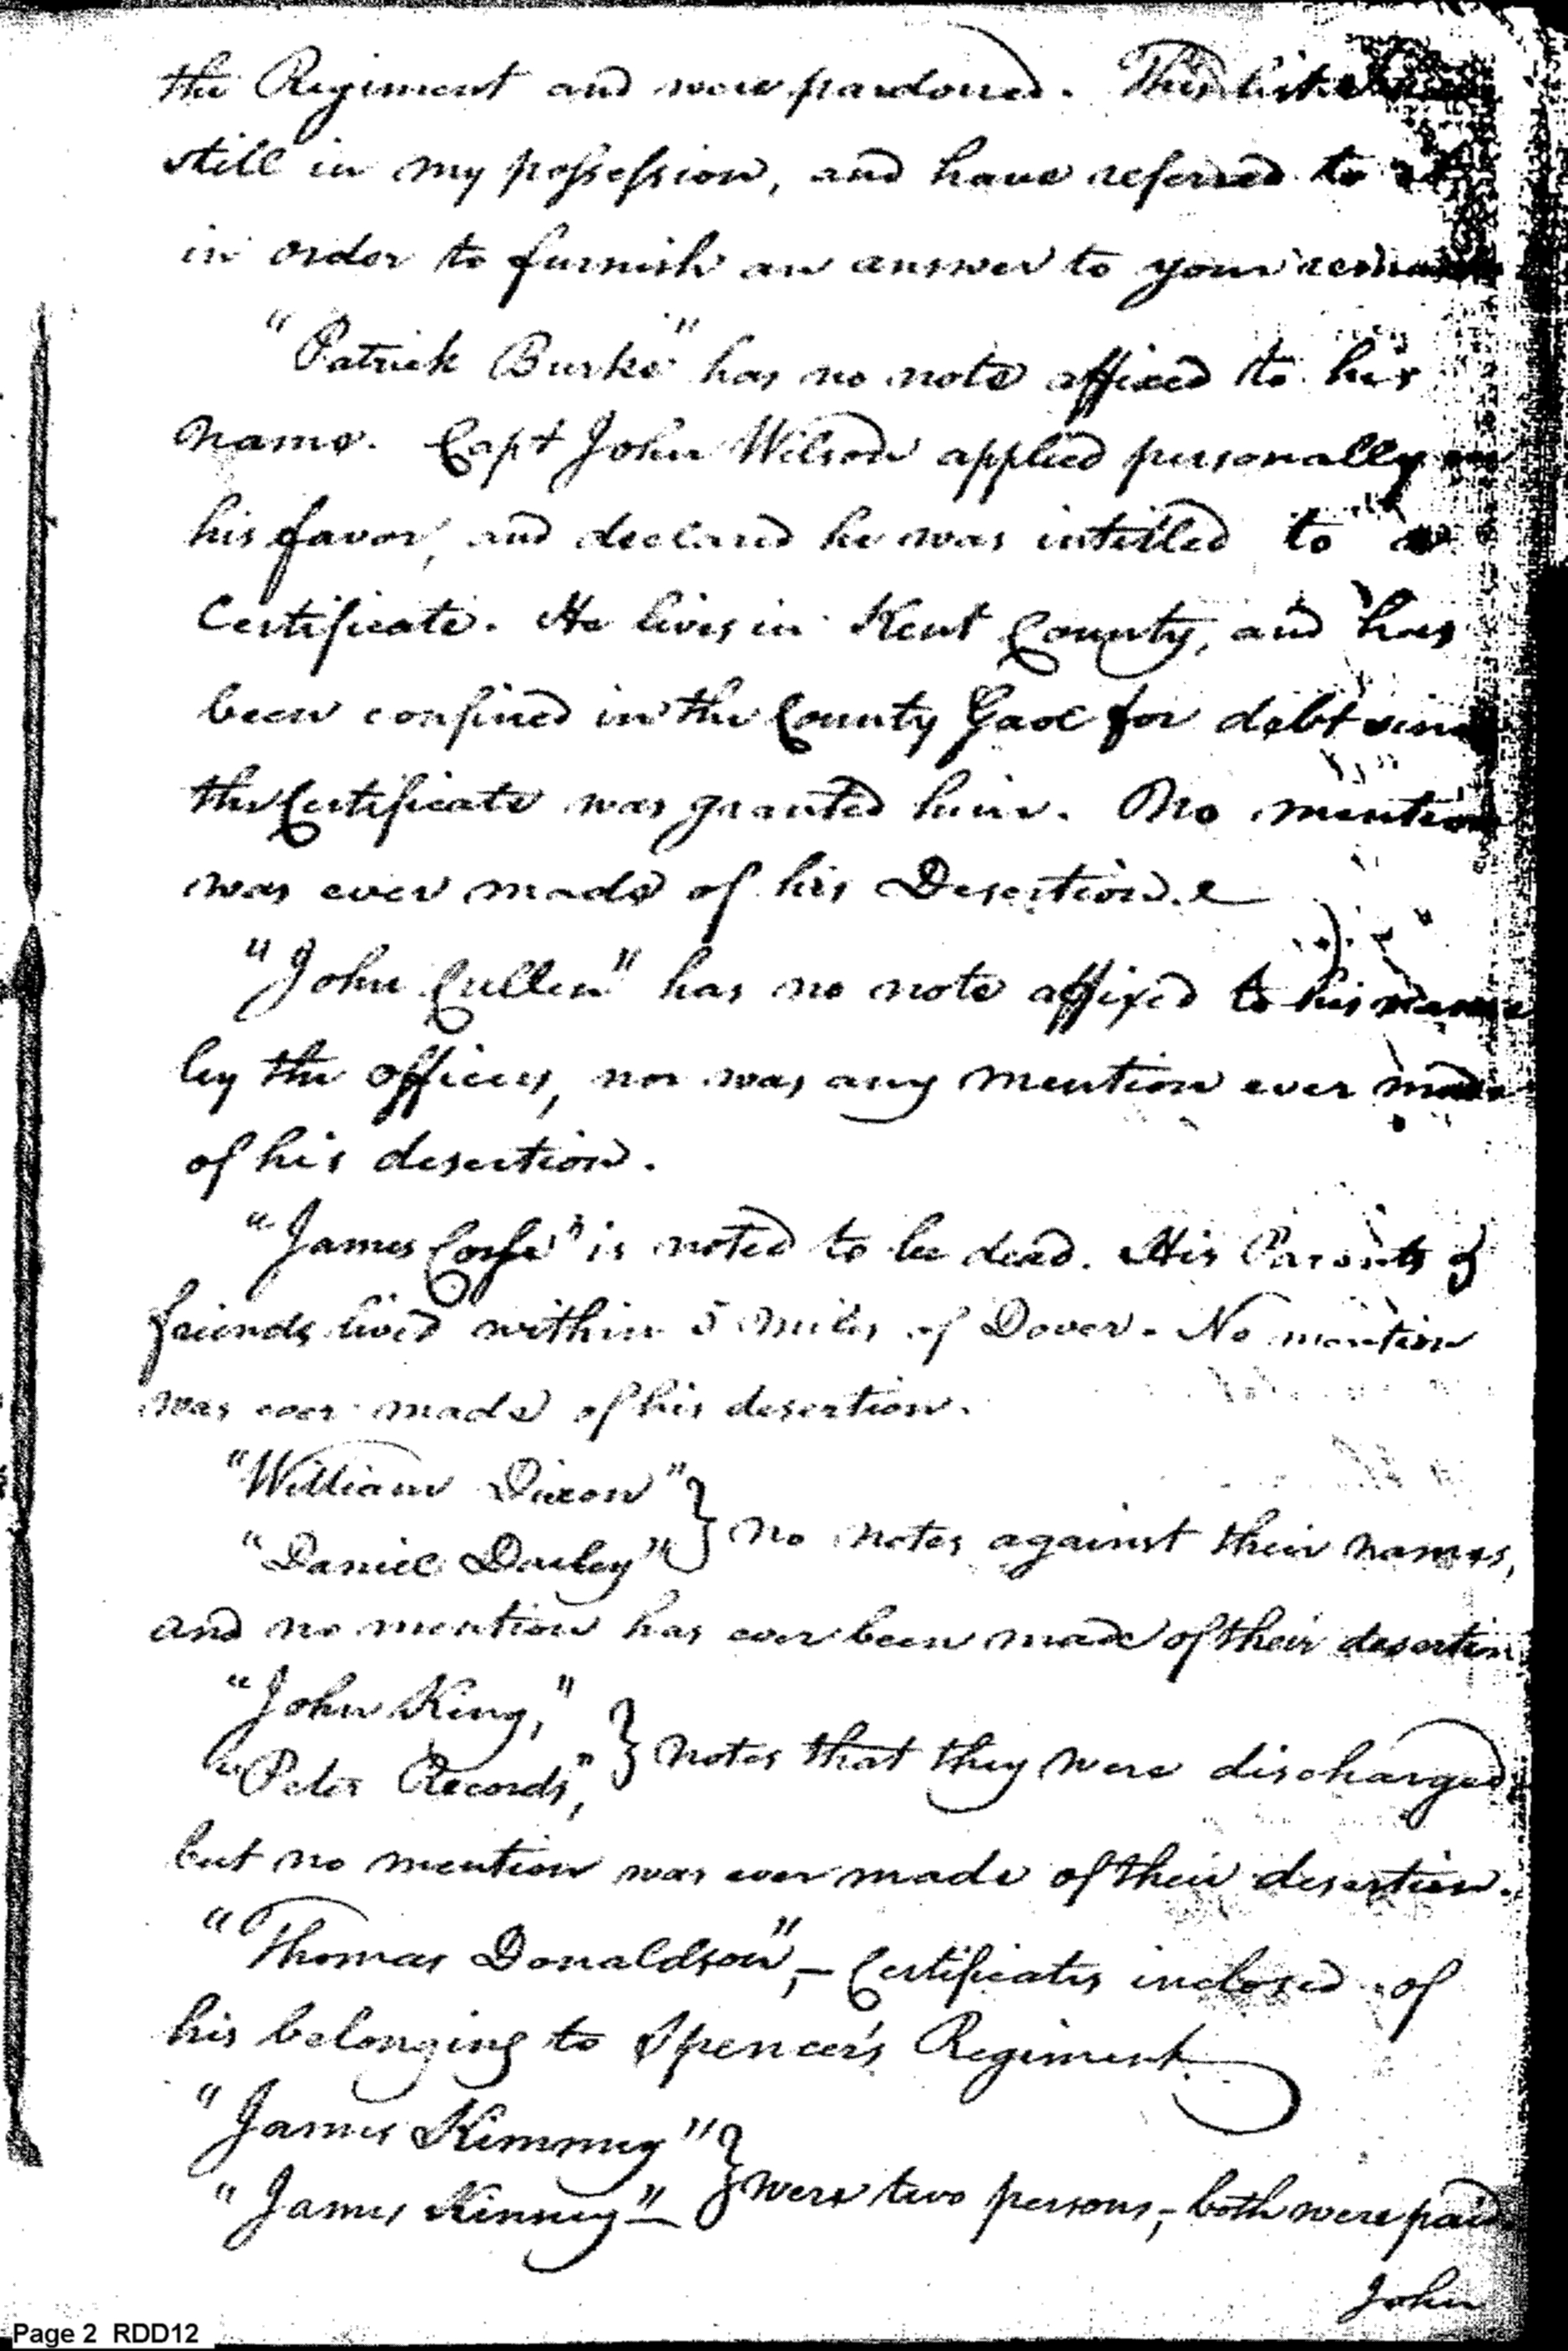 the Regiment and were pardoned. This list
still in my possession, and have referred to it
in order to furnish an answer to your
"Patrick Burke" has no note affixed to his
name. Capt John Wilson applied personally
his favor, and declared he was intitled to a
Certificate. He lives in Kent County, and has
been confined in the County Gaol for debt since
the Certificate was granted him. No mention
was ever made of his Desertion.
"John Cullen" has no note affixed to his name
by the officers, nor was any mention ever made
of his desertion.
"James Corse" is noted to be dead. His Parents &
friends lived within 5 miles of Dover. No mention
was ever made of his desertion.
"William Dixon"
"Daniel Dailey" } no notes against their names,
and no mention has ever been made of their desertion
"John King,"
"Peter Records", } notes that they were discharged,
but no mention was ever made of their desertion.
"Thomas Donaldson", – Certificates inclosed of
his belonging to Spencer's Regiment
"James Kimmey"
"James Kinney" } were two persons, – both were paid.
John
Page 2 RDD12